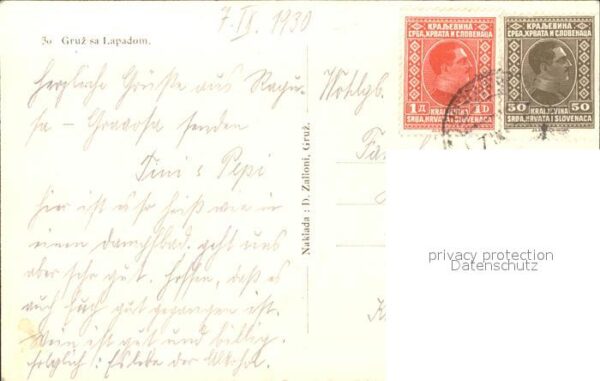 7. IX. 1930
30 Gruž sa Lapadom.
Herzliche Grüße aus Ragu-
sa - Gravosa senden
Tini & Pepi
hier ist es so heiß wie in
einem Dampfbad. geht uns
aber sehr gut. Hoffen, daß es
auch euch gut gegangen ist.
Wein ist gut und billig.
folglich: Es lebe der Alkohol.
Naklada : D. Zalloni, Gruž.
КРАЉЕВИНА
СРБА, ХРВАТА И СЛОВЕНАЦА
1 Д 1 D
KRALJEVINA
SRBA, HRVATA I SLOVENACA
КРАЉЕВИНА
СРБА, ХРВАТА И СЛОВЕНАЦА
50 50
KRALJEVINA
SRBA, HRVATA I SLOVENACA
privacy protection
Datenschutz